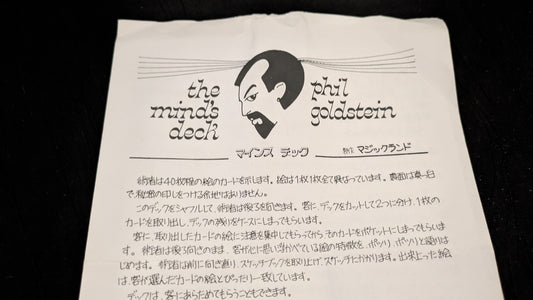 the mind's deck
phil goldstein
マインズ デック 製作 マジックランド
術者は40枚程の絵のカードを示します。絵は1枚1枚全て異なっています。裏面は真白
で、秘密の印しをつける余地はありません。
このデックをシャフルして、術者は後ろを向きます。客に、デックをカットして2つに分け、1枚の
カードを取り出し、デックの残りをケースにしまってもらいます。
客に、取り出したカードの絵に注意を集中してもらってから、そのカードをポケットにしまってもらいま
す。術者は後ろ向きのまま、客が心に思い浮かべている絵の特徴を、ポツリ、ポツリと語りは
じめます。術者は前に向き直り、スケッチブックを取り上げ、スケッチにかかります。出来上った絵
は、客が選んだカードの絵とぴったり一致しています。
デックは、客にあらためてもらうこともできます。